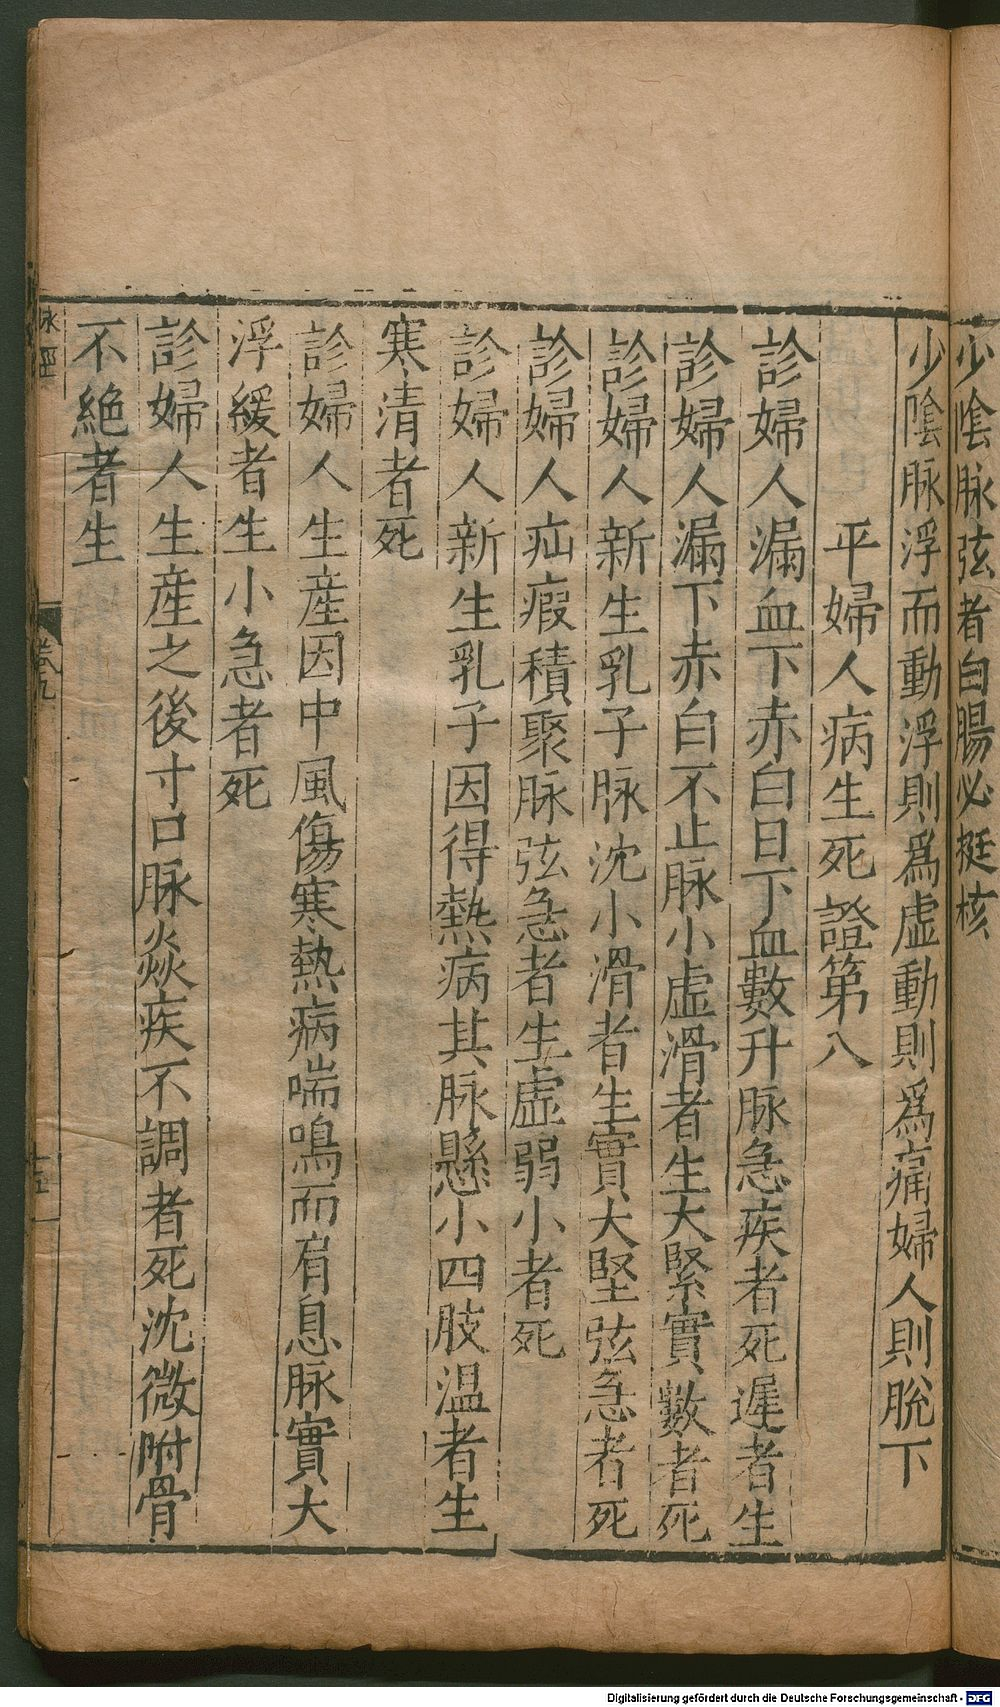 少陰脉弦者白腸必挺核
少陰脉浮而動浮則爲虛動則爲痛婦人則脫下
平婦人病生死證第八
診婦人漏血下赤白日下血數升脉急疾者死遲者生
診婦人漏下赤白不止脉小虛滑者生大緊實數者死
診婦人新生乳子脉沈小滑者生實大堅弦急者死
診婦人疝瘕積聚脉弦急者生虛弱小者死
診婦人新生乳子因得熱病其脉懸小四肢温者生
寒清者死
診婦人生産因中風傷寒熱病喘鳴而肩息脉實大
浮緩者生小急者死
診婦人生産之後寸口脉焱疾不調者死沈微附骨
不絶者生
脉經
卷九
Digitalisierung gefördert durch die Deutsche Forschungsgemeinschaft - DFG